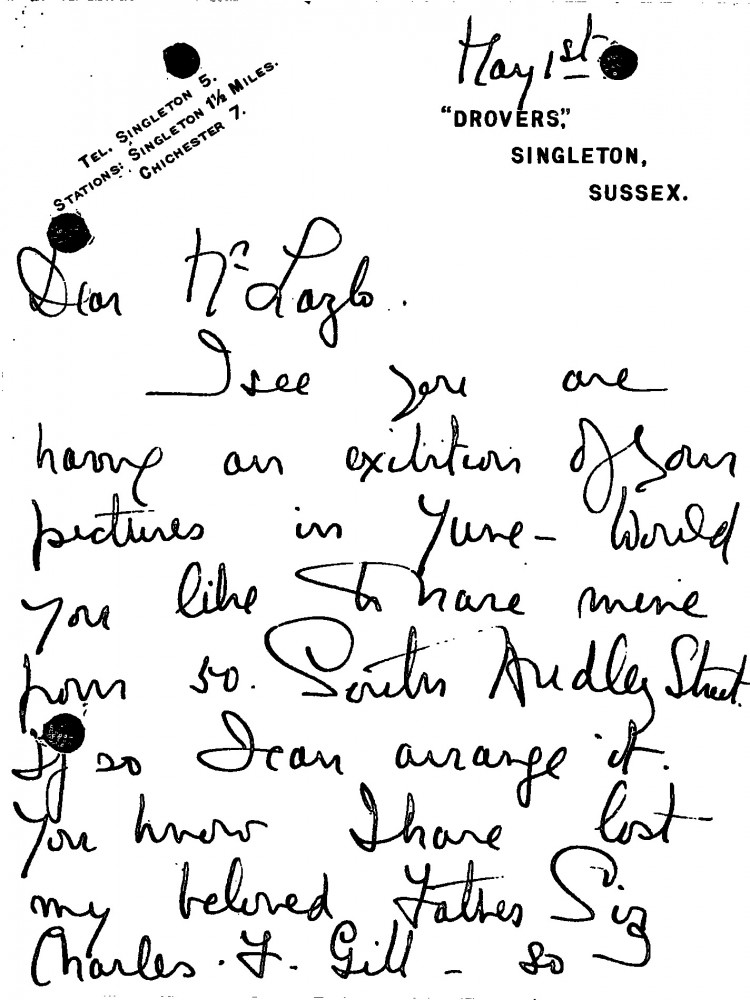 TEL. SINGLETON 5.
STATIONS: SINGLETON 1½ MILES.
CHICHESTER 7.
May 1st
"DROVERS,"
SINGLETON,
SUSSEX.
Dear Mr Lazlo.
I see you are
having an exibition of your
pictures in June - Would
you like to have mine
from 50. South Audley Street.
If so I can arrange it.
You know I have lost
my beloved Father Sir
Charles. F. Gill - so